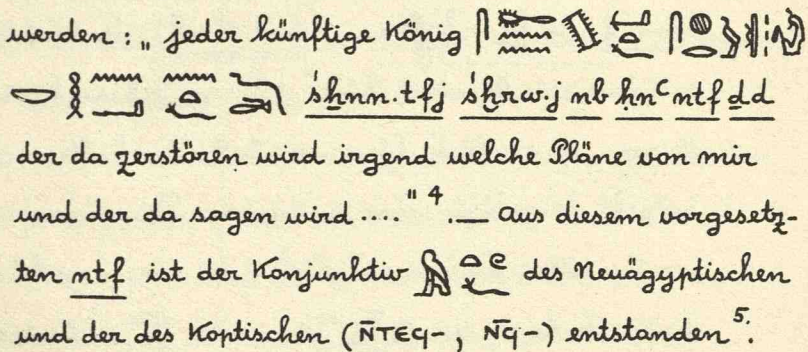 werden : „ jeder künftige König
ś̱ẖnn.tfj śḫrw.j nb ḥnꜥ ntf ḏd
der da zerstören wird irgend welche Pläne von mir
und der da sagen wird ...." 4. — Aus diesem vorgesetz-
ten ntf ist der Konjunktiv des Neuägyptischen
und der des Koptischen (N̄TEϤ-, N̄Ϥ-) entstanden 5.